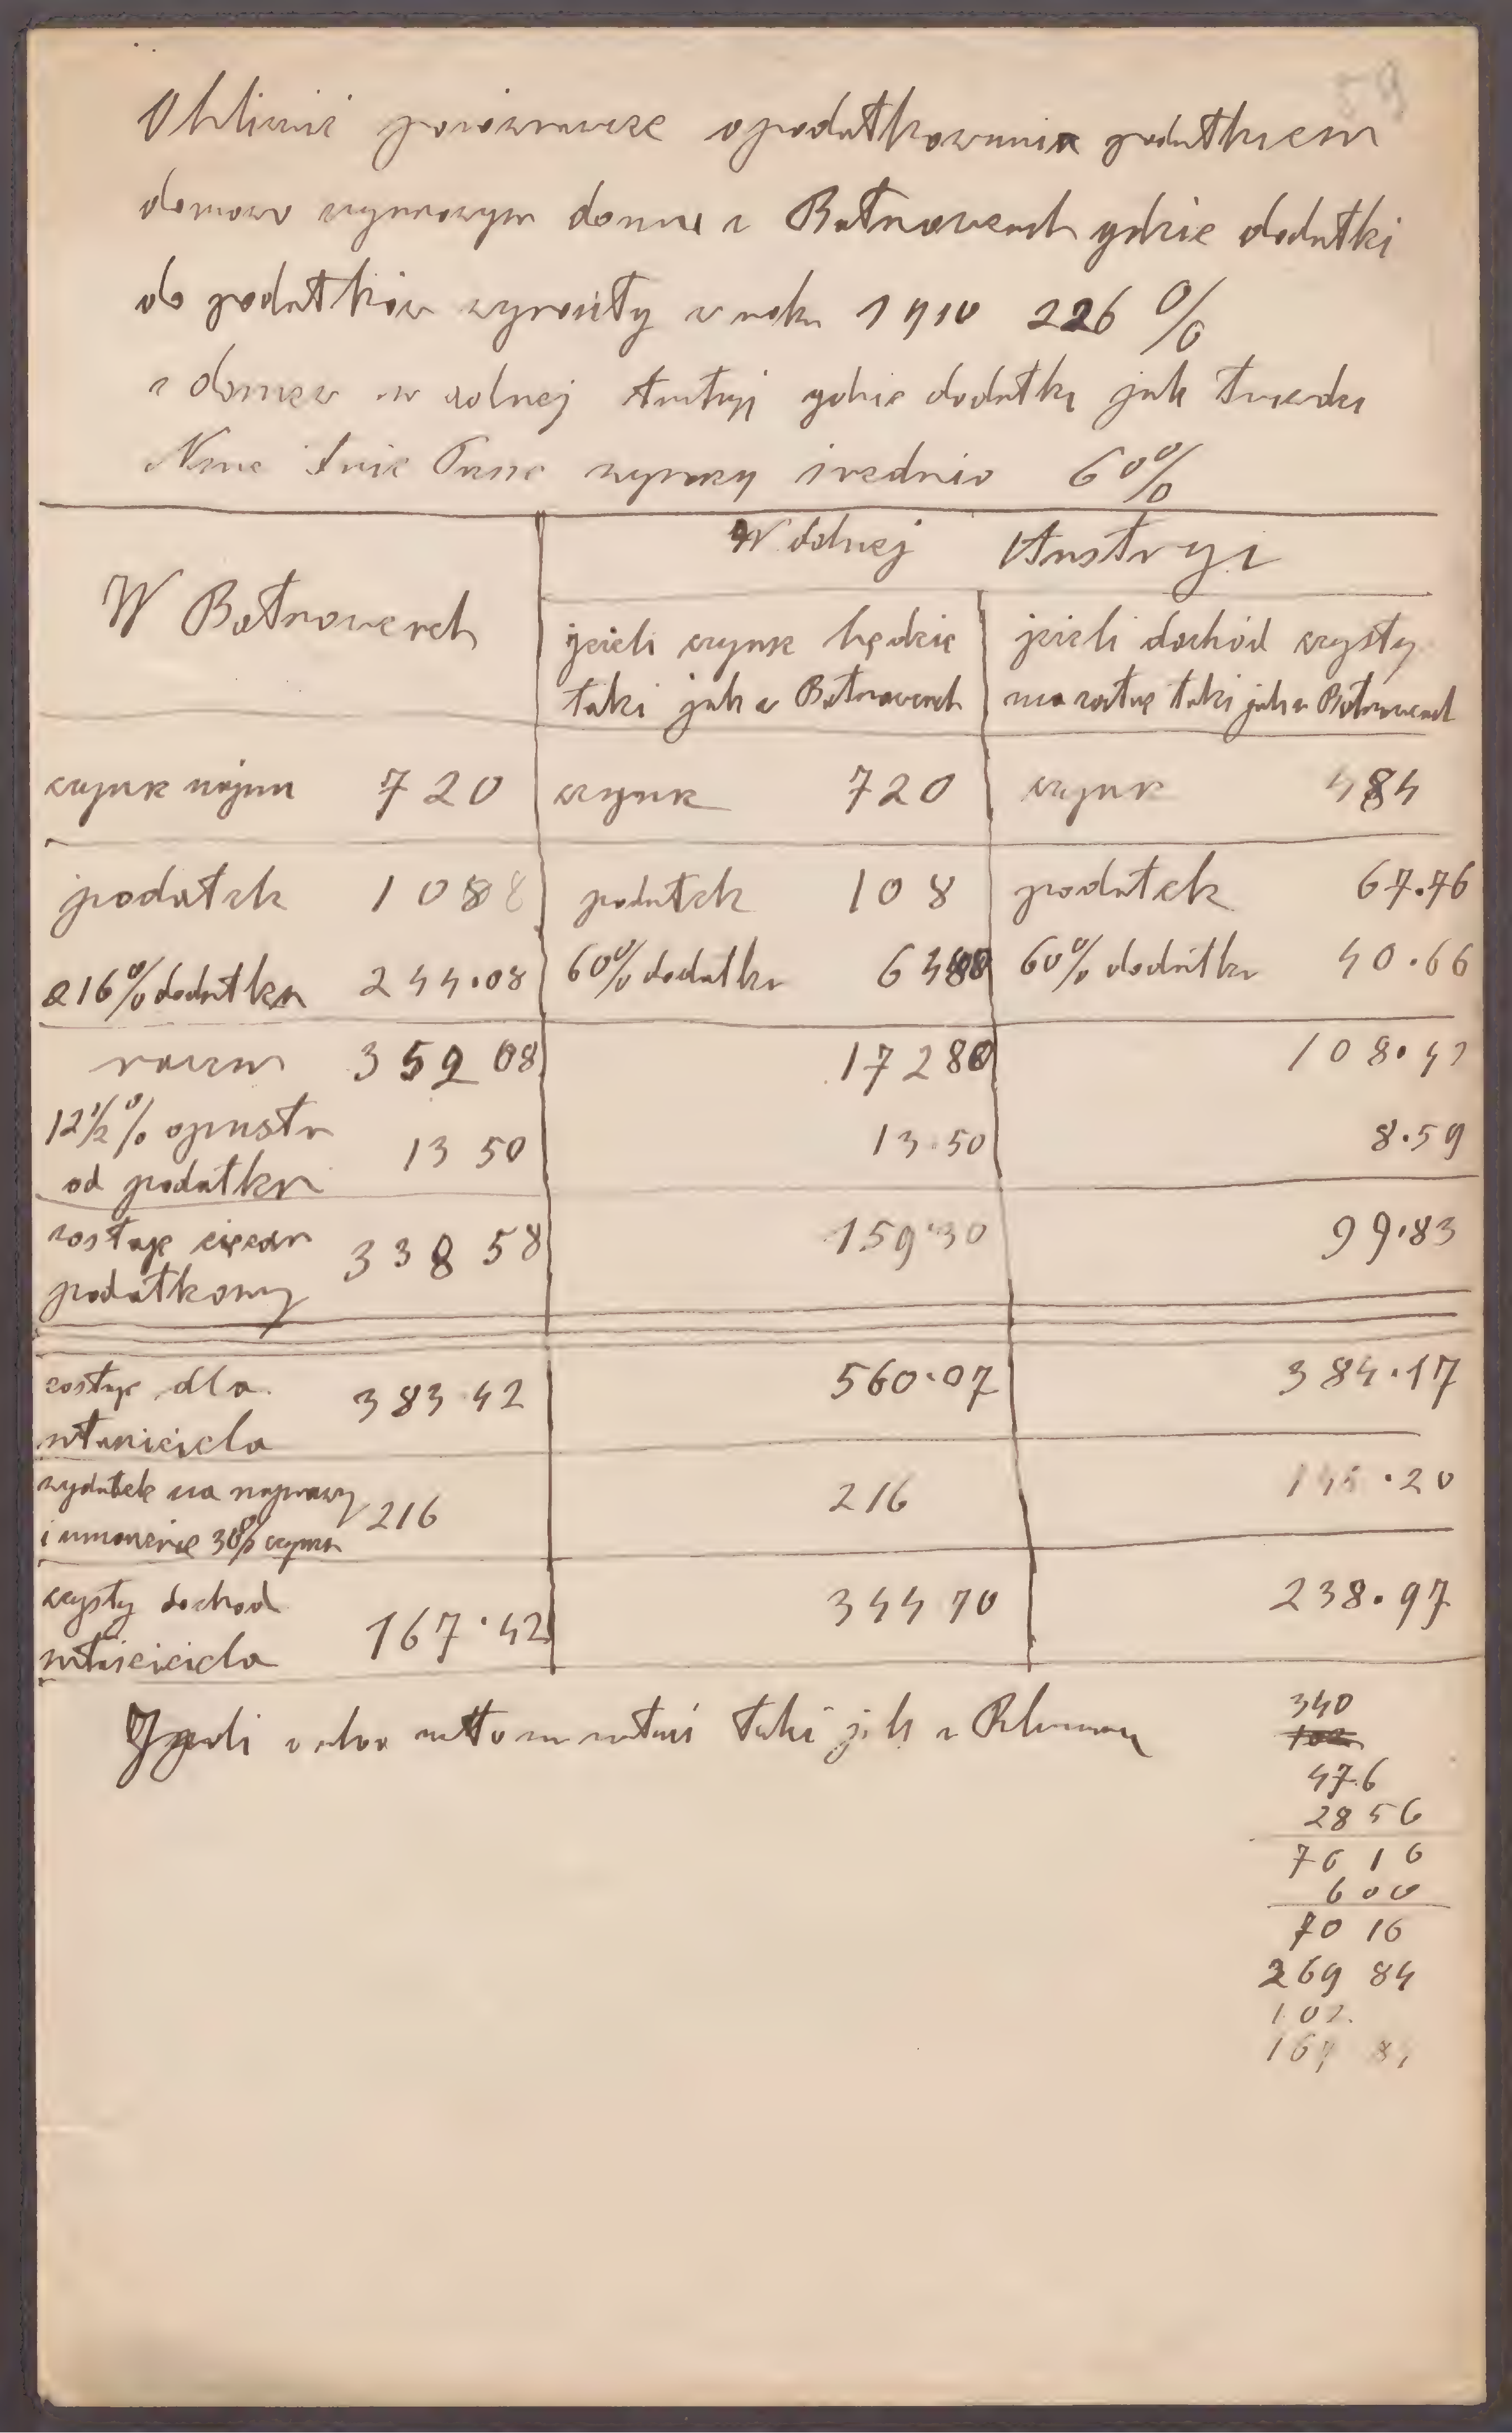 59
Obliczenie porównawcze opodatkowania podatkiem
domowo czynszowym domu w Batnowcach gdzie dodatki
do podatków wynosiły w roku 1910 226 %
a domu w dolnej Austryi gdzie dodatki jak twierdzi
Neue Freie Presse wynoszą średnio 60%
W Batnowcach
W dolnej Austryi
jeżeli czynsz będzie
taki jak w Batnowcach
jeżeli dochód czysty
ma zostać taki jak w Batnowcach
czynsz najmu 720 czynsz 720 czynsz 484
podatek 108 podatek 108 podatek 67.76
216% dodatku 244.08 60% dodatku 6480 60% dodatku 40.66
razem 352 08 17280 108.42
12½% opustu
od podatku 13 50 13.50 8.59
zostaje ciężar
podatkowy 338 58 159.30 99.83
zostaje dla
właściciela 383 42 560.07 384.17
wydatek na naprawy
i umorzenie 30% czynszu 216 216 145.20
czysty dochod
właściciela 167.42 344 70 238.97
taki jak w
340
476
2856
76 16
600
70 16
269 84
102.